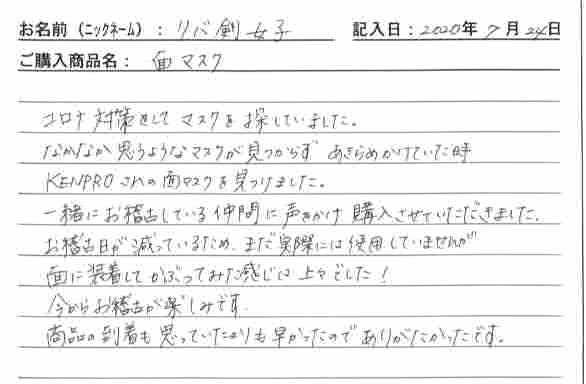 お名前（ニックネーム）： リバ剣女子 記入日：2020年 7月 24日
ご購入商品名： 面マスク
コロナ対策をして マスクを探していました。
なかなか思うようなマスクが見つからず あきらめかけていた時
KENPROさんの面マスクを見つけました。
一緒にお稽古している仲間に声をかけ 購入させていただきました。
お稽古日が減っているため、まだ実際には使用していませんが
面に装着して かぶってみた感じは 上々でした！
今からお稽古が楽しみです。
商品の到着も思っていたよりも早かったので ありがたかったです。